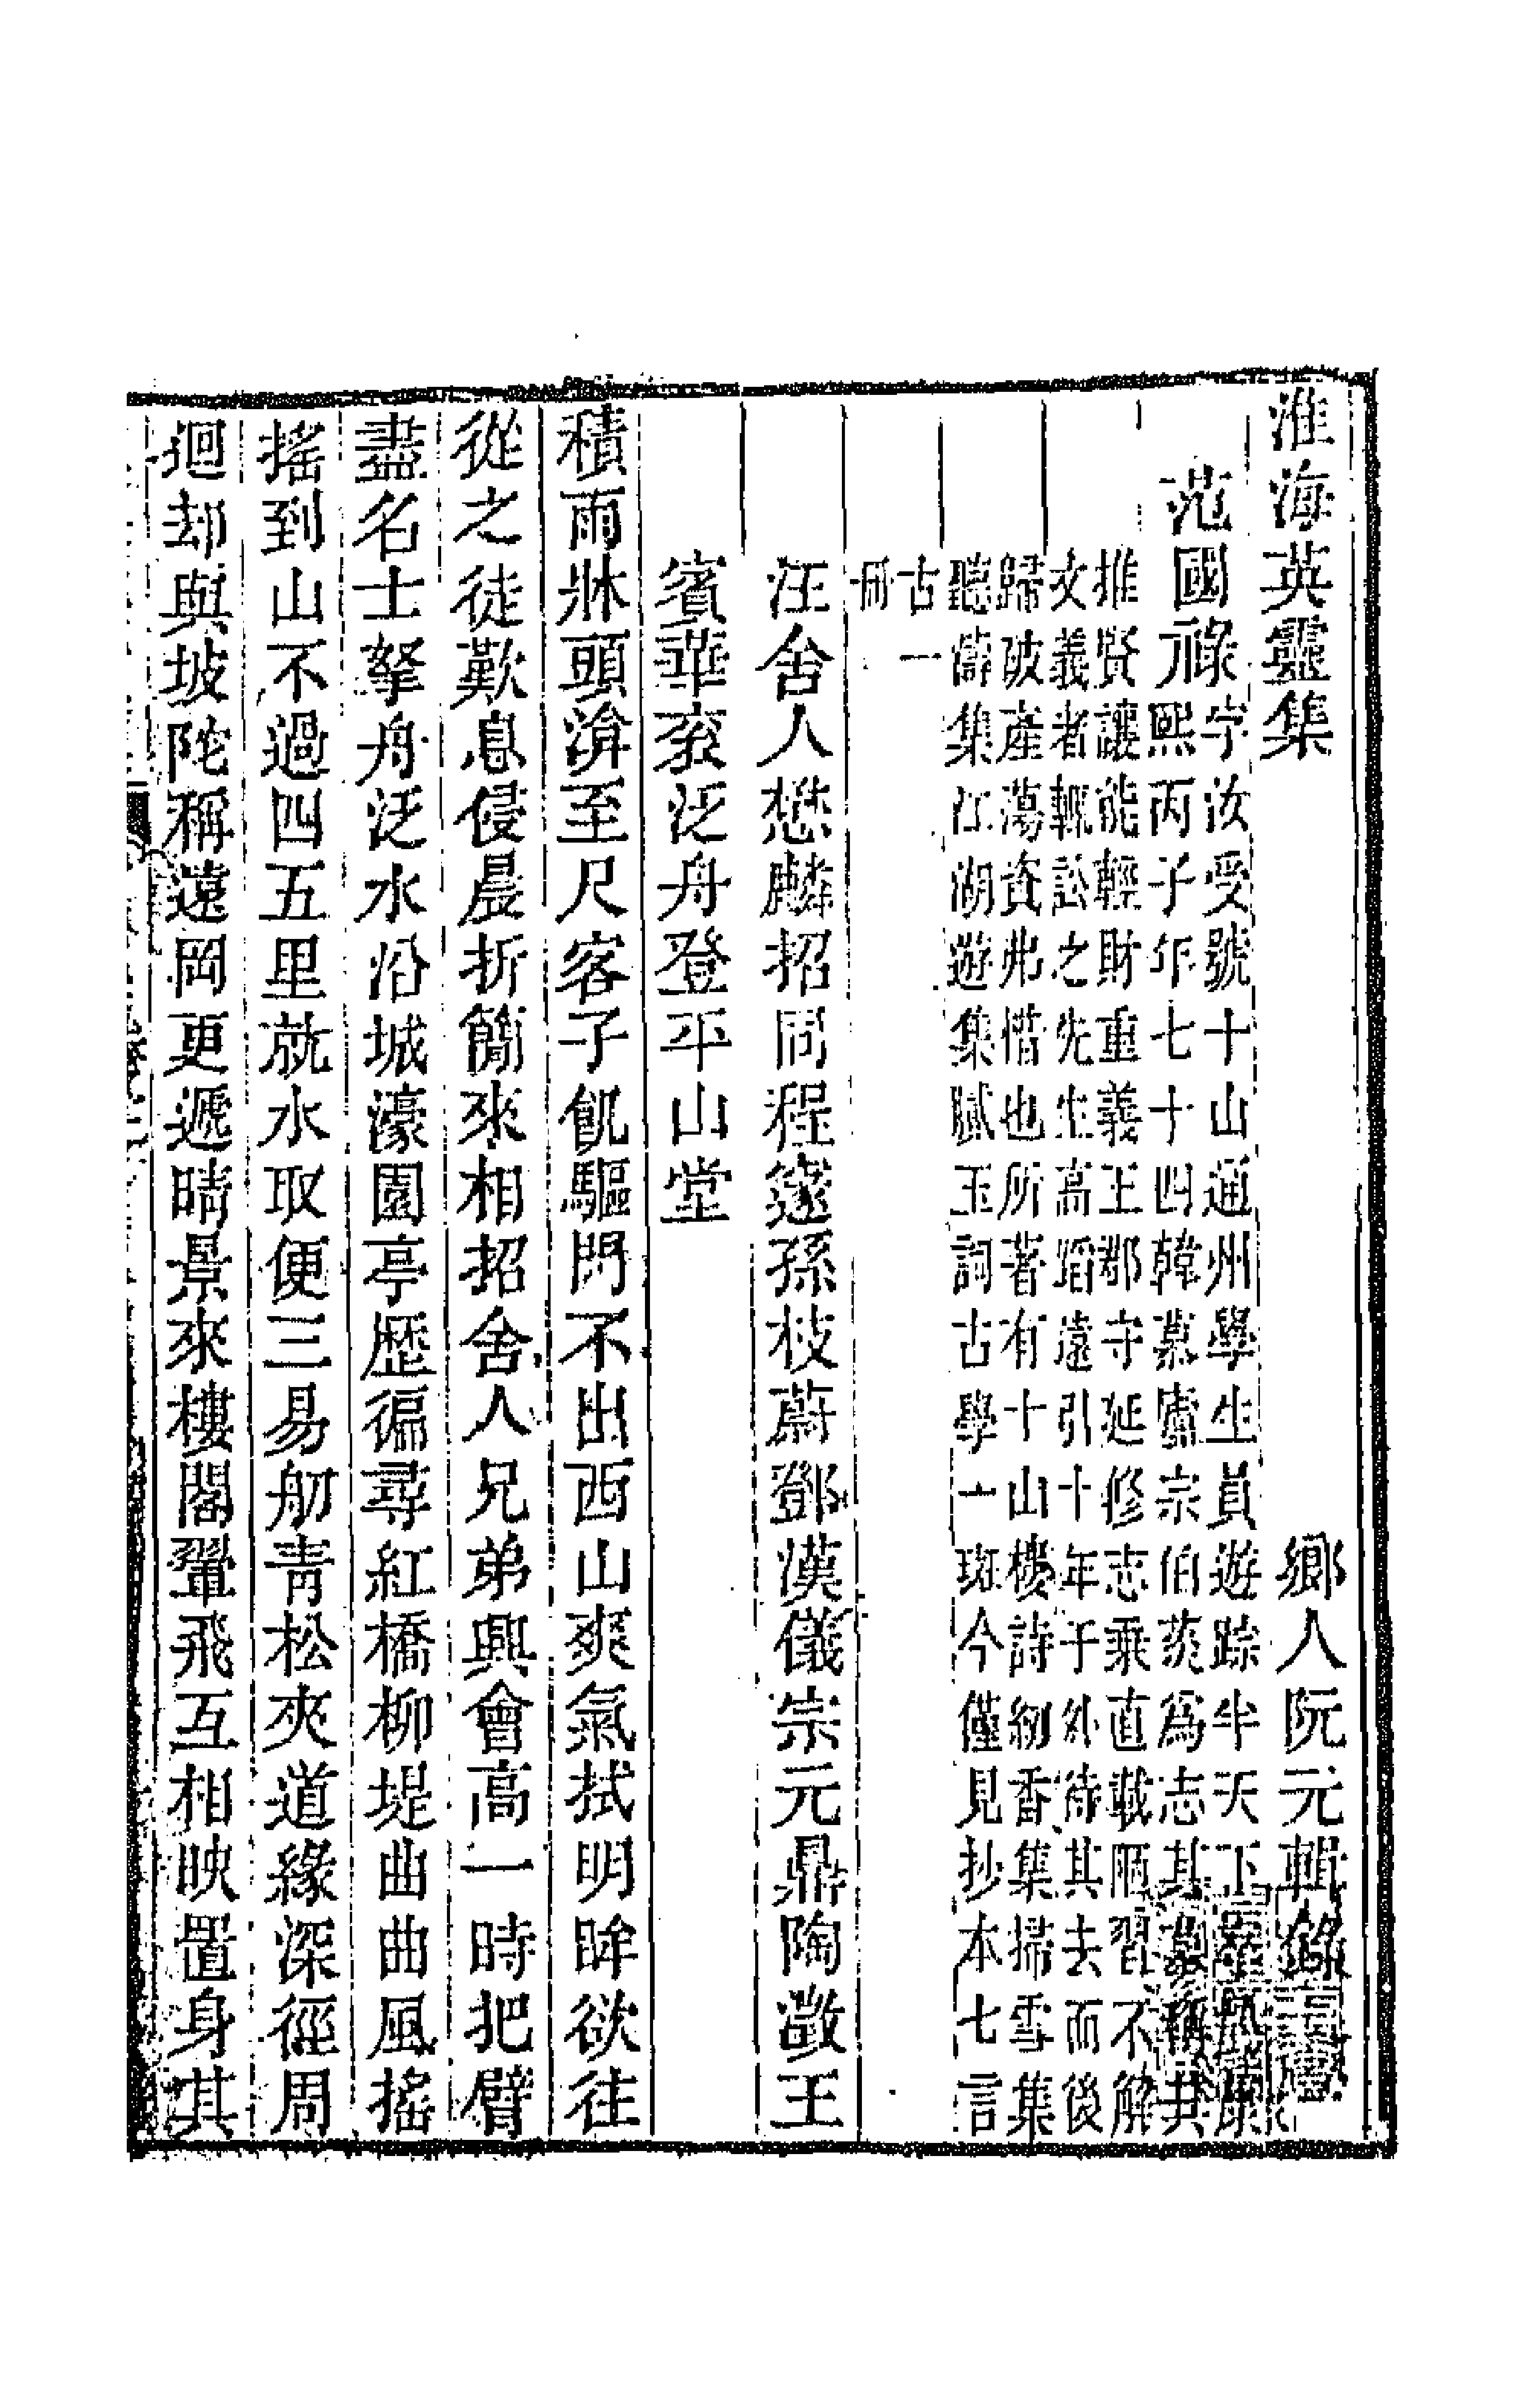 淮海英靈集
鄉人阮元輯錄
范國祿
字汝受號十山通州學生員遊踪半天下卒於康
熙丙子年七十四韓慕廬宗伯菼為志其墓稱其
推賢讓能輕財重義王郡守延修志乘直載陋習不解
文義者輒訟之先生高蹈遠引十年于外待其去而後
歸破產蕩資弗惜也所著有十山樓詩紉香集掃雪集
聽濤集江湖遊集賦玉詞古學一斑今僅見抄本七言
古一
冊
汪舍人懋麟招同程邃孫枝蔚鄧漢儀宗元鼎陶澂王
賓華袞泛舟登平山堂
積雨牀頭渰至尺客子飢驅閉不出西山爽氣拭明眸欲往
從之徒歎息侵晨折簡來相招舍人兄弟興會高一時把臂
盡名士拏舟泛水沿城濠園亭歷徧尋紅橋柳堤曲曲風搖
搖到山不過四五里就水取便三易舠青松夾道緣深徑周
迴却與坡陀稱遠岡更遞晴景來樓閣翬飛互相映置身其